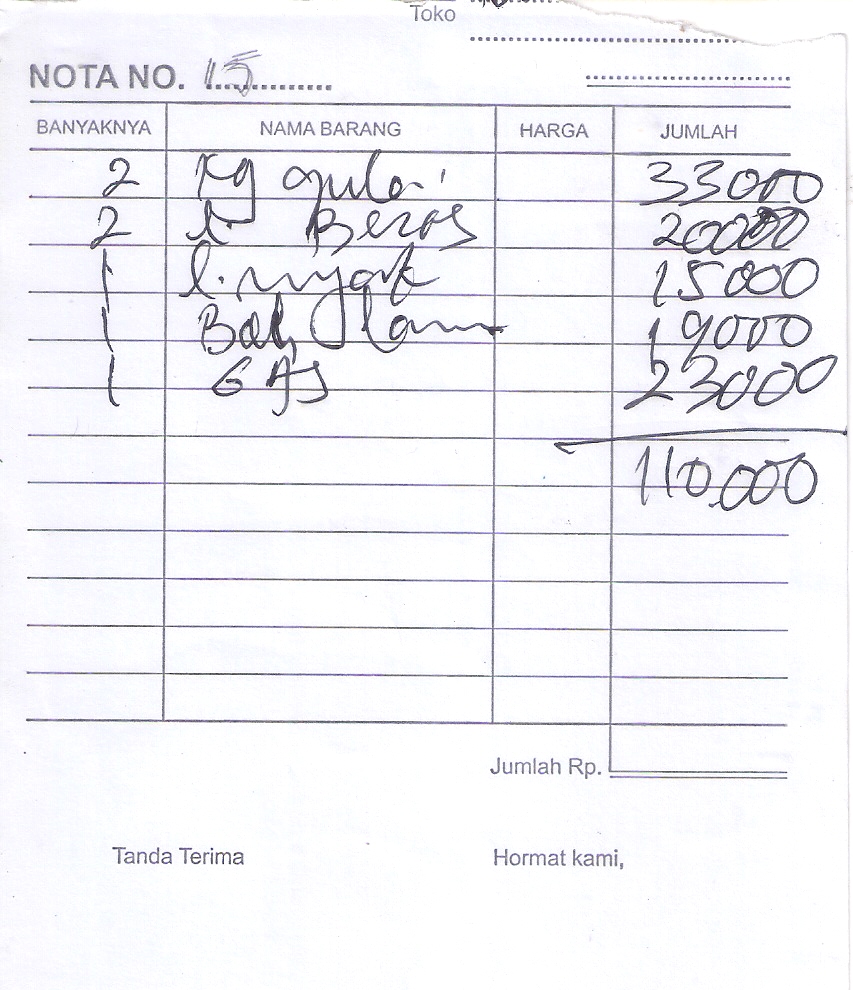 Toko
NOTA NO. 15
BANYAKNYA NAMA BARANG HARGA JUMLAH
2 Kg gula 33000
2 l. Beras 20000
1 l. minyak 15000
1 19000
1 GAS 23000
110.000
Jumlah Rp.
Tanda Terima Hormat kami,